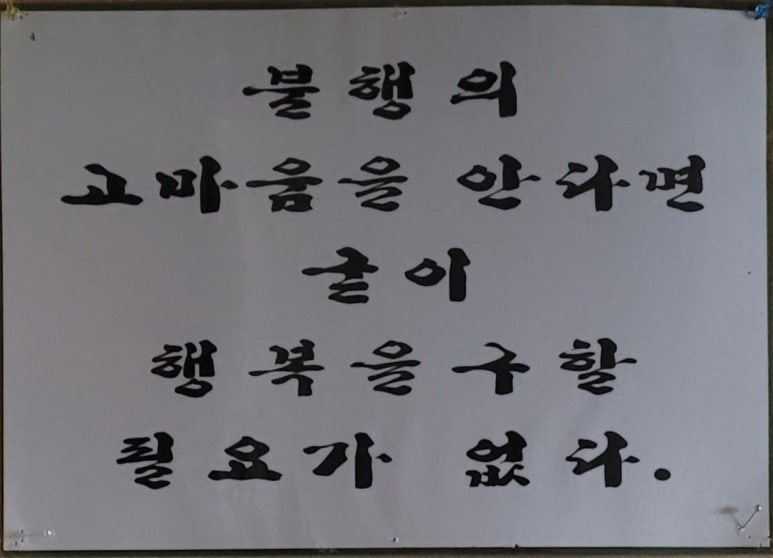 4
불행의
고마움을 안다면
굳이
행복을구할
필요가 없다.